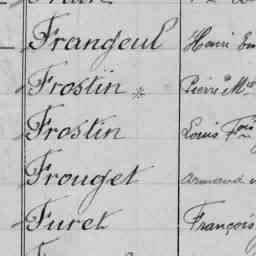 Frangeul Henri
Frostin * Pierre M
Frostin Louis Fois
Frouget Armand
Furet François